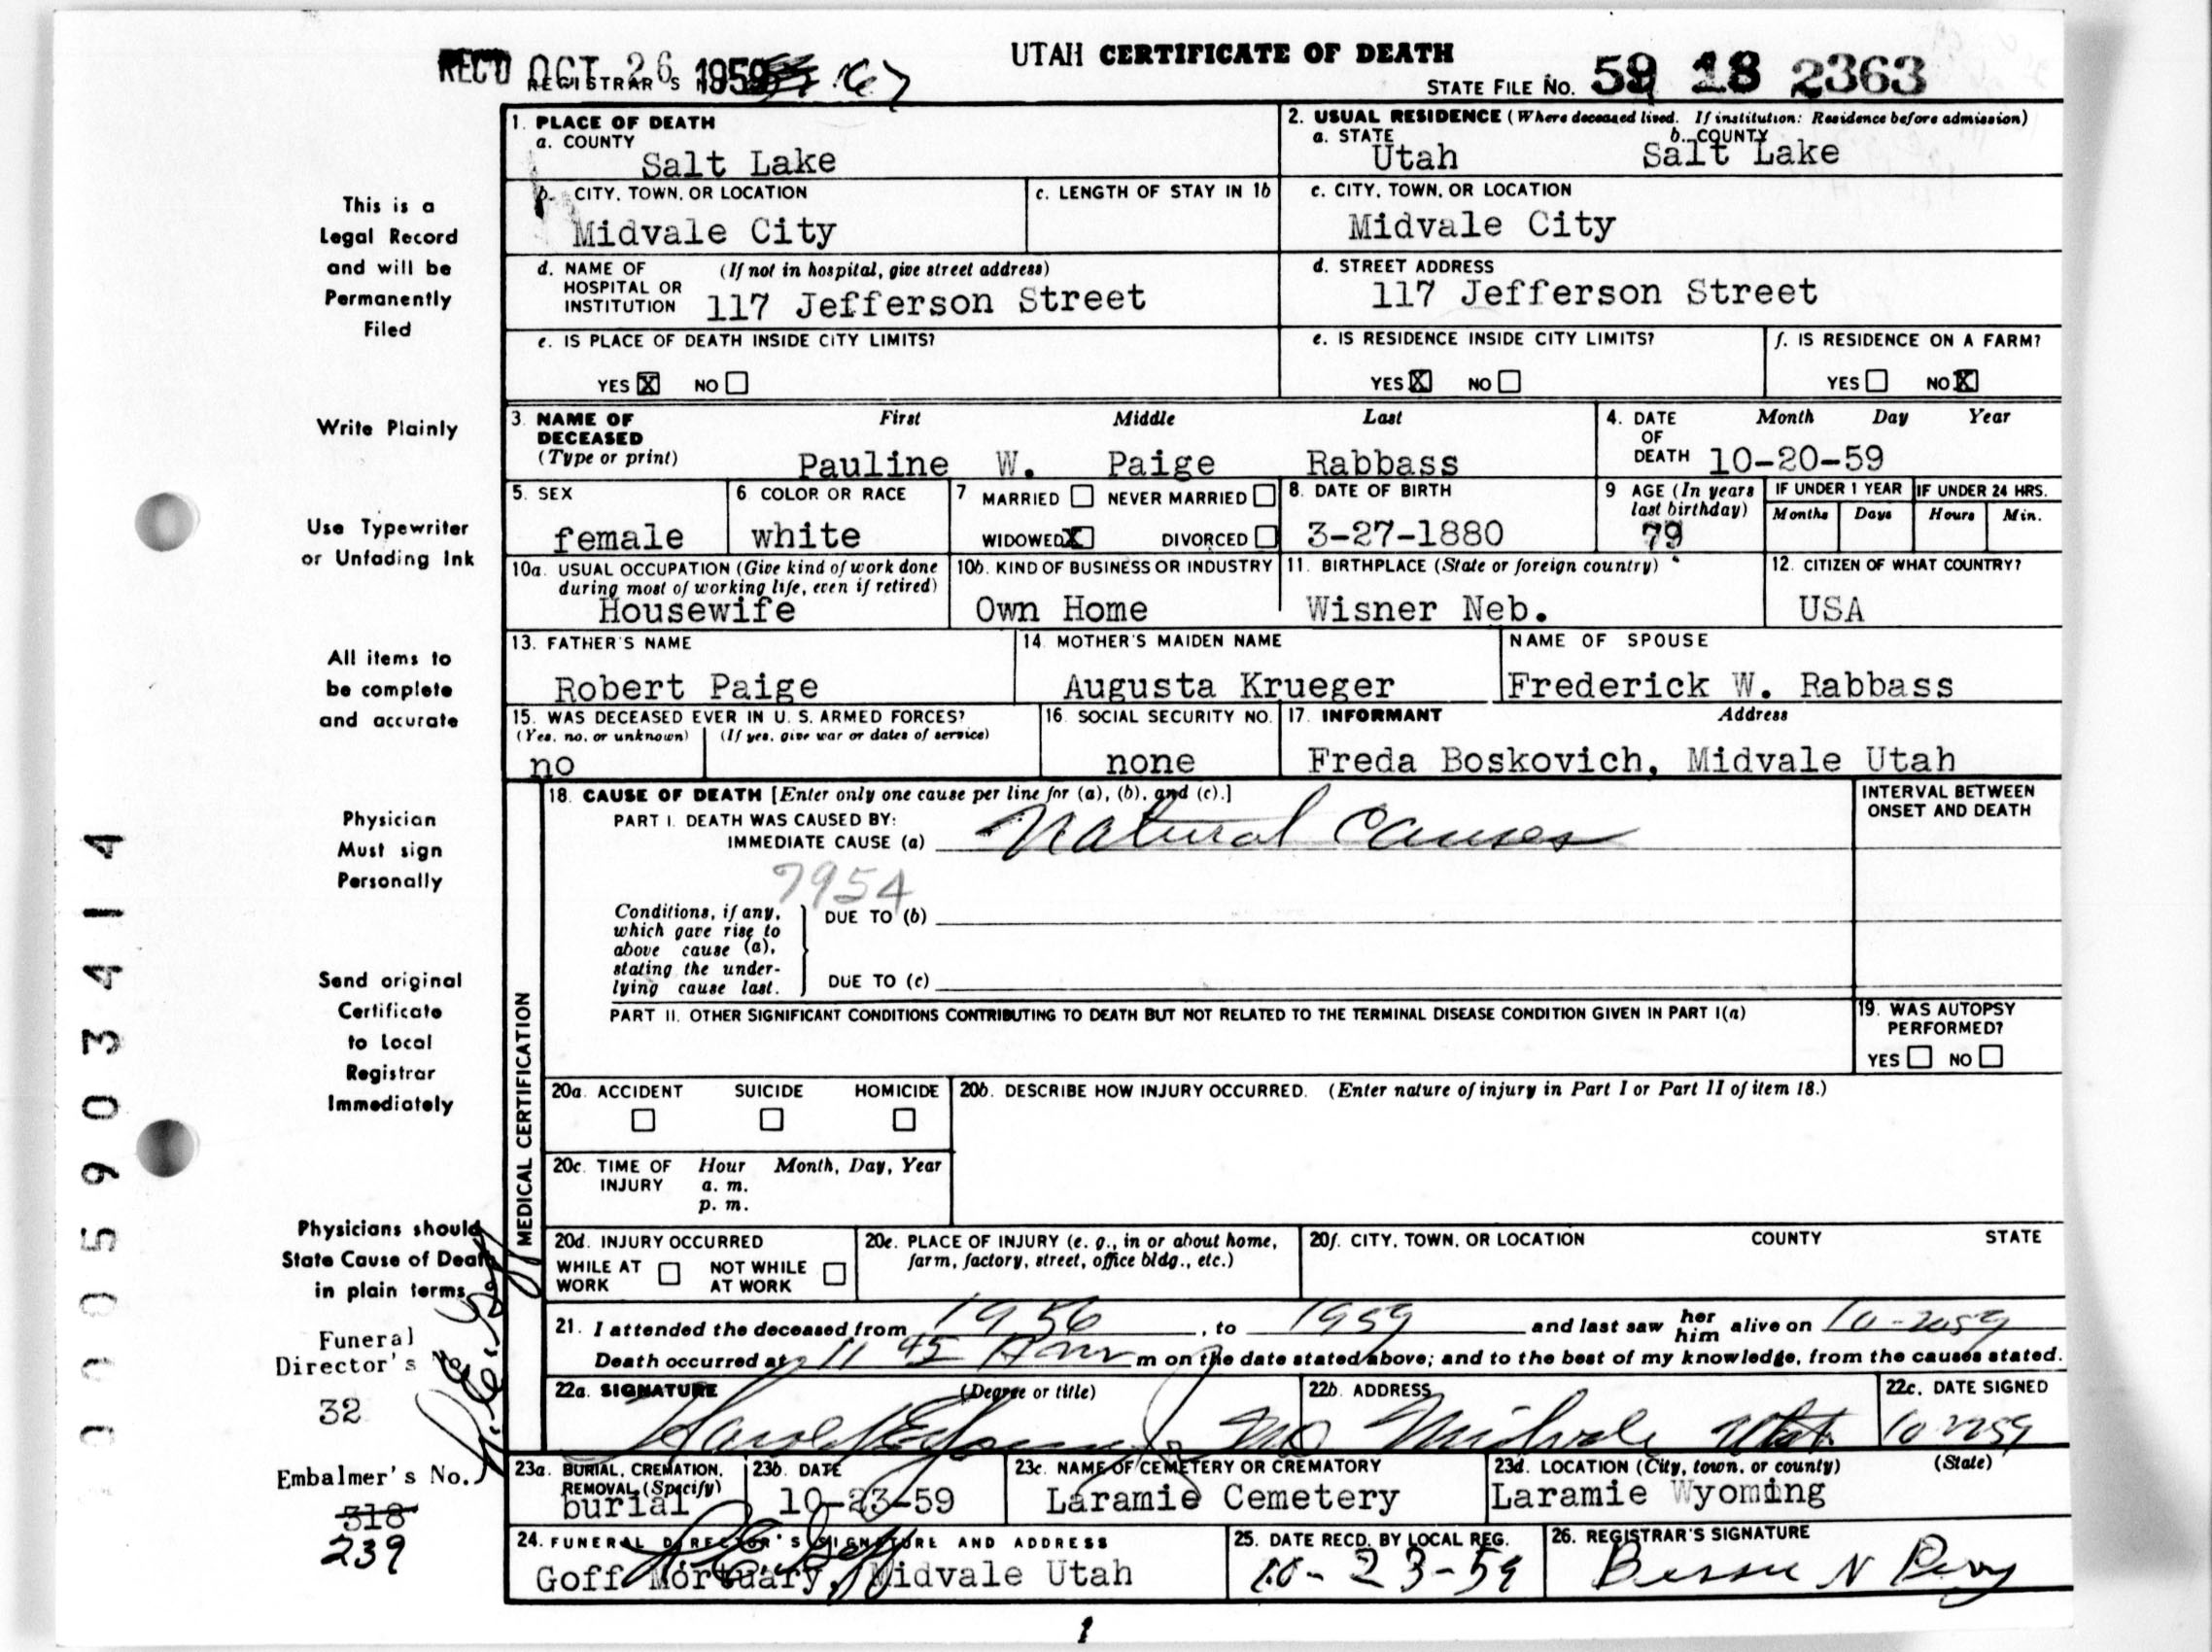 UTAH CERTIFICATE OF DEATH
REC'D OCT 26 1959
REGISTRAR'S 167
STATE FILE NO. 59 18 2363
1. PLACE OF DEATH
a. COUNTY
Salt Lake
2. USUAL RESIDENCE (Where deceased lived. If institution: Residence before admission)
a. STATE b. COUNTY
Utah Salt Lake
b. CITY, TOWN, OR LOCATION
Midvale City
c. LENGTH OF STAY IN 1b
c. CITY, TOWN, OR LOCATION
Midvale City
d. NAME OF HOSPITAL OR INSTITUTION (If not in hospital, give street address)
117 Jefferson Street
d. STREET ADDRESS
117 Jefferson Street
e. IS PLACE OF DEATH INSIDE CITY LIMITS?
YES X NO
e. IS RESIDENCE INSIDE CITY LIMITS?
YES X NO
f. IS RESIDENCE ON A FARM?
YES NO X
3. NAME OF DECEASED (Type or print) First Middle Last
Pauline W. Paige Rabbass
4. DATE OF DEATH Month Day Year
10-20-59
5. SEX
female
6. COLOR OR RACE
white
7. MARRIED NEVER MARRIED
WIDOWED X DIVORCED
8. DATE OF BIRTH
3-27-1880
9. AGE (In years last birthday)
79
IF UNDER 1 YEAR
Months Days
IF UNDER 24 HRS.
Hours Min.
10a. USUAL OCCUPATION (Give kind of work done during most of working life, even if retired)
Housewife
10b. KIND OF BUSINESS OR INDUSTRY
Own Home
11. BIRTHPLACE (State or foreign country)
Wisner Neb.
12. CITIZEN OF WHAT COUNTRY?
USA
13. FATHER'S NAME
Robert Paige
14. MOTHER'S MAIDEN NAME
Augusta Krueger
NAME OF SPOUSE
Frederick W. Rabbass
15. WAS DECEASED EVER IN U. S. ARMED FORCES?
(Yes, no, or unknown) (If yes, give war or dates of service)
no
16. SOCIAL SECURITY NO.
none
17. INFORMANT Address
Freda Boskovich, Midvale Utah
MEDICAL CERTIFICATION
18. CAUSE OF DEATH [Enter only one cause per line for (a), (b), and (c).]
PART I. DEATH WAS CAUSED BY:
IMMEDIATE CAUSE (a) Natural Causes
INTERVAL BETWEEN ONSET AND DEATH
7954
Conditions, if any, which gave rise to above cause (a), stating the underlying cause last.
DUE TO (b)
DUE TO (c)
PART II. OTHER SIGNIFICANT CONDITIONS CONTRIBUTING TO DEATH BUT NOT RELATED TO THE TERMINAL DISEASE CONDITION GIVEN IN PART I(a)
19. WAS AUTOPSY PERFORMED?
YES NO
20a. ACCIDENT SUICIDE HOMICIDE
20b. DESCRIBE HOW INJURY OCCURRED. (Enter nature of injury in Part I or Part II of item 18.)
20c. TIME OF INJURY Hour Month, Day, Year
a. m.
p. m.
20d. INJURY OCCURRED
WHILE AT WORK NOT WHILE AT WORK
20e. PLACE OF INJURY (e. g., in or about home, farm, factory, street, office bldg., etc.)
20f. CITY, TOWN, OR LOCATION COUNTY STATE
21. I attended the deceased from 1956, to 1959 and last saw her him alive on 10-20 59
Death occurred at 11 45 A m on the date stated above; and to the best of my knowledge, from the causes stated.
22a. SIGNATURE (Degree or title)
Harold MD
22b. ADDRESS
Midvale Utah
22c. DATE SIGNED
23a. BURIAL, CREMATION, REMOVAL (Specify)
burial
23b. DATE
10-23-59
23c. NAME OF CEMETERY OR CREMATORY
Laramie Cemetery
23d. LOCATION (City, town, or county) (State)
Laramie Wyoming
24. FUNERAL DIRECTOR'S SIGNATURE AND ADDRESS
Goff Mortuary, Midvale Utah
25. DATE RECD. BY LOCAL REG.
10-23-59
26. REGISTRAR'S SIGNATURE
Bessie N
This is a
Legal Record
and will be
Permanently
Filed
Write Plainly
Use Typewriter
or Unfading Ink
All items to
be complete
and accurate
Physician
Must sign
Personally
Send original
Certificate
to Local
Registrar
Immediately
Physicians should
State Cause of Death
in plain terms
Funeral
Director's
32
Embalmer's No.
318
239
0005903414
1